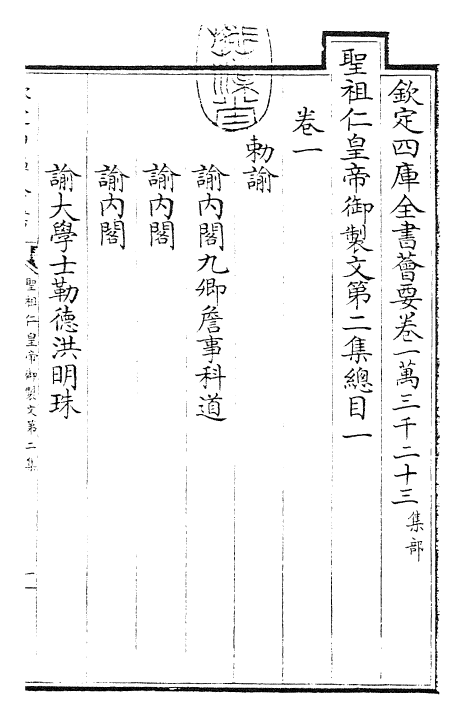 欽定四庫全書薈要卷一萬三千二十三 集部
聖祖仁皇帝御製文第二集總目一
卷一
勅諭
諭內閣九卿詹事科道
諭內閣
諭內閣
諭大學士勒德洪明珠
聖祖仁皇帝御製文第二集
一